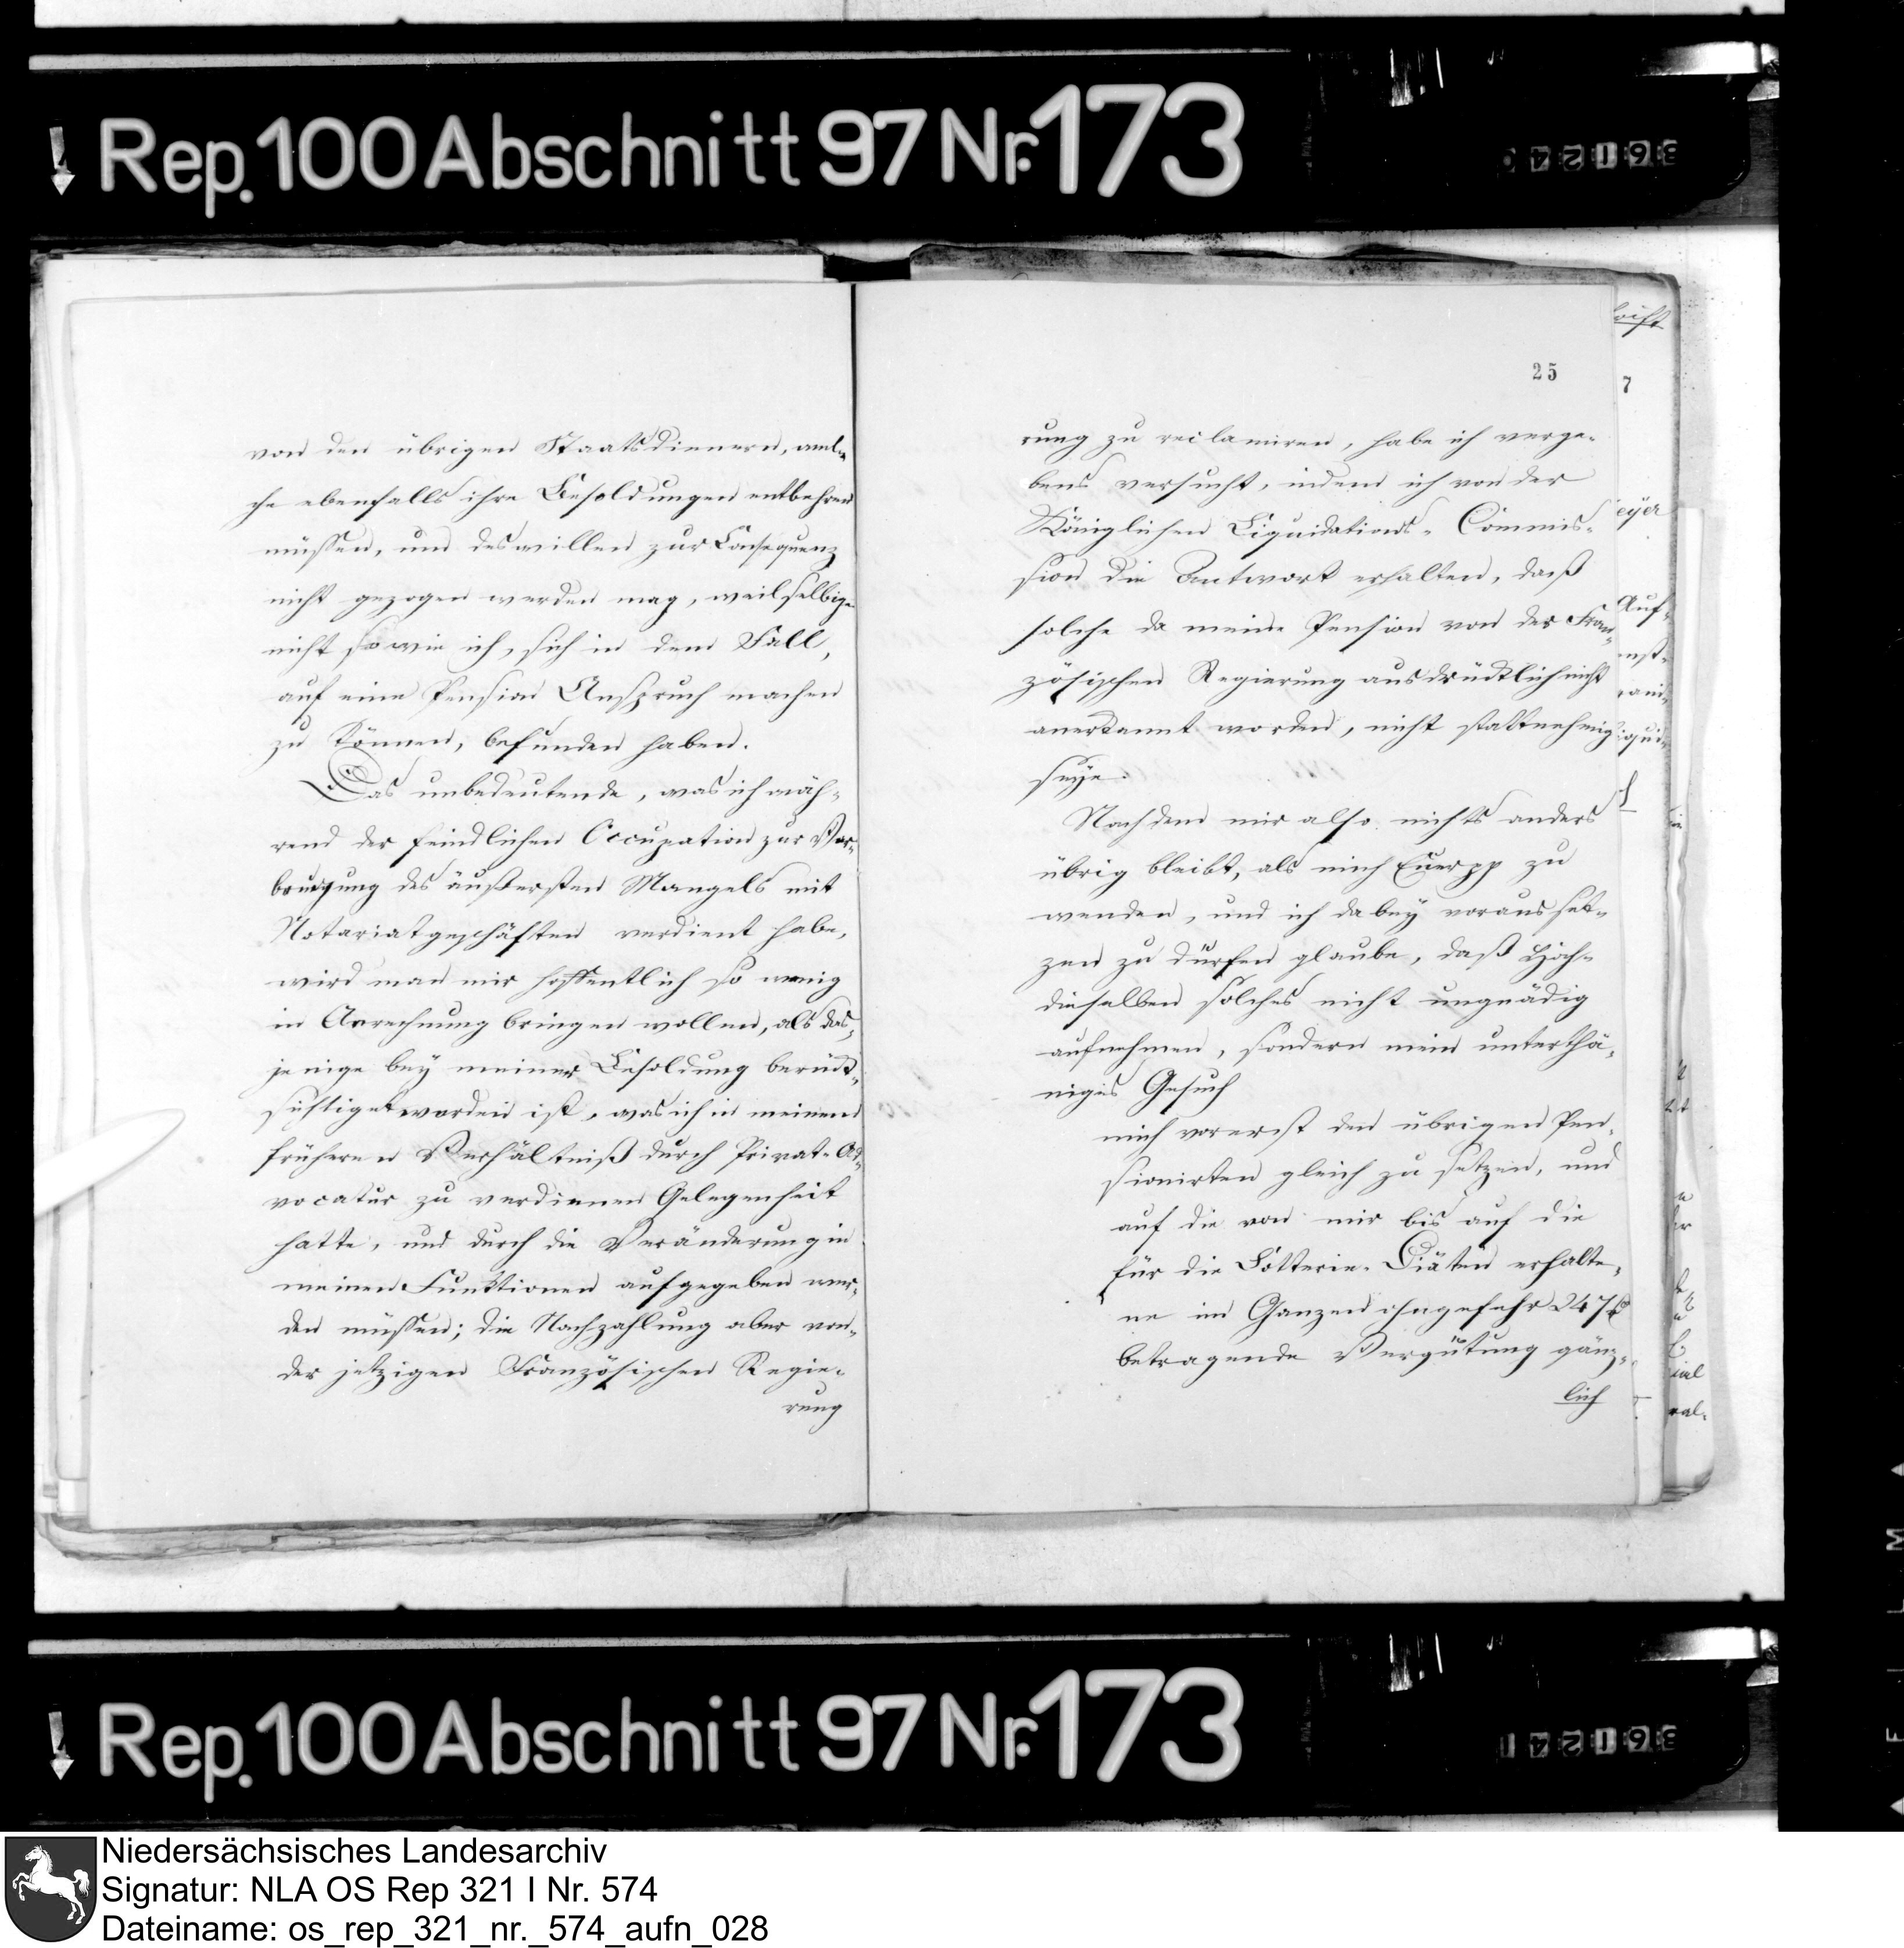 Rep. 100 Abschnitt 97 Nr. 173
von den übrigen Staatsdienern, wel-
che ebenfalls ihre Besoldungen entbehren
müssen, und deswillen zur Consequenz
nicht gezogen werden mag, weil selbige
nicht so wie ich, sich in dem Fall,
auf eine Pension Anspruch machen
zu können, befunden haben.
Das unbedeutende, was ich wäh-
rend der feindlichen Occupation zur Vor-
beugung des äußersten Mangels mit
Notariatgeschäften verdient habe,
wird man mir hoffentlich so wenig
in Anrechnung bringen wollen, als das-
jenige bey meiner Besoldung berück-
sichtiget worden ist, was ich in meinem
früheren Verhältniß durch Privat-Ad-
vocatur zu verdienen Gelegenheit
hatte, und durch die Veränderung in
meinen Funktionen aufgegeben wer-
den müssen; die Nachzahlung aber von
der jetzigen Französischen Regie-
rung
25
rung zu reclamiren, habe ich verge-
bens versucht, indem ich von der
Königlichen Liquidations-Commis-
sion die Antwort erhalten, daß
solche da meine Pension von der Fran-
zösischen Regierung ausdrücklich nicht
anerkannt worden, nicht stattnehmig
seye.
Nachdem mir also nichts anders
übrig bleibt, als mich Euer pp zu
wenden, und ich dabey voraus set-
zen zu dürfen glaube, daß Hoch-
dieselben solches nicht ungnädig
aufnehmen, sondern mein unterthä-
niges Gesuch
mich vorerst den übrigen Pen-
sionirten gleich zu setzen, und
auf die von mir bis auf die
für die Lotterie-Diäten erhalte-
ne im Ganzen ohngefehr 247
betragende Vergütung gänz-
lich
7
eyer
Auf-
Rep. 100 Abschnitt 97 Nr. 173
Niedersächsisches Landesarchiv
Signatur: NLA OS Rep 321 I Nr. 574
Dateiname: os_rep_321_nr._574_aufn_028